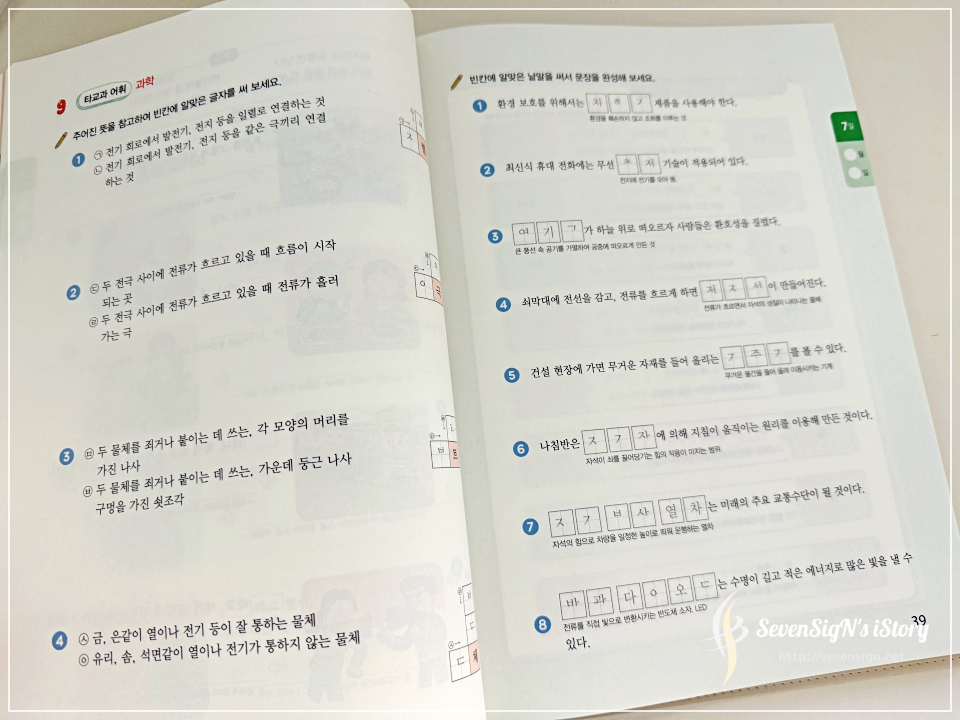 9 타교과 어휘 과학
주어진 뜻을 참고하여 빈칸에 알맞은 글자를 써 보세요.
1 ㉠ 전기 회로에서 발전기, 전지 등을 일렬로 연결하는 것
㉡ 전기 회로에서 발전기, 전지 등을 같은 극끼리 연결
하는 것
ㅈ
2 ㉢ 두 전극 사이에 전류가 흐르고 있을 때 흐름이 시작
되는 곳
㉣ 두 전극 사이에 전류가 흐르고 있을 때 전류가 흘러
가는 극
ㅇ 극
3 ㉤ 두 물체를 죄거나 붙이는 데 쓰는, 각 모양의 머리를
가진 나사
㉥ 두 물체를 죄거나 붙이는 데 쓰는, 가운데 둥근 나사
구멍을 가진 쇳조각
ㅂ 트
4 ㉦ 금, 은같이 열이나 전기 등이 잘 통하는 물체
㉧ 유리, 솜, 석면같이 열이나 전기가 통하지 않는 물체
ㄷ 체
빈칸에 알맞은 낱말을 써서 문장을 완성해 보세요.
1 환경 보호를 위해서는 치 ㅎ ㄱ 제품을 사용해야 한다.
환경을 훼손하지 않고 조화를 이루는 것
2 최신식 휴대 전화에는 무선 ㅊ 저 기술이 적용되어 있다.
전지에 전기를 모아 둠.
3 여 기 ㄱ 가 하늘 위로 떠오르자 사람들은 환호성을 질렀다.
큰 풍선 속 공기를 가열하여 공중에 떠오르게 만든 것
4 쇠막대에 전선을 감고, 전류를 흐르게 하면 저 ㅈ 서 이 만들어진다.
전류가 흐르면서 자석의 성질이 나타나는 물체
5 건설 현장에 가면 무거운 자재를 들어 올리는 ㄱ 주 ㄱ 를 볼 수 있다.
무거운 물건을 들어 올려 이동시키는 기계
6 나침반은 ㅈ ㄱ 자 에 의해 지침이 움직이는 원리를 이용해 만든 것이다.
자석이 쇠를 끌어당기는 힘의 작용이 미치는 범위
7 ㅈ ㄱ ㅂ 사 열 차 는 미래의 주요 교통수단이 될 것이다.
자석의 힘으로 차량을 일정한 높이로 띄워 운행하는 열차
8 바 과 다 ㅇ 오 ㄷ 는 수명이 길고 적은 에너지로 많은 빛을 낼 수
전류를 직접 빛으로 변환시키는 반도체 소자. LED
있다.
7일
월
일
39
SevenSigN's iStory
http://sevensign.net